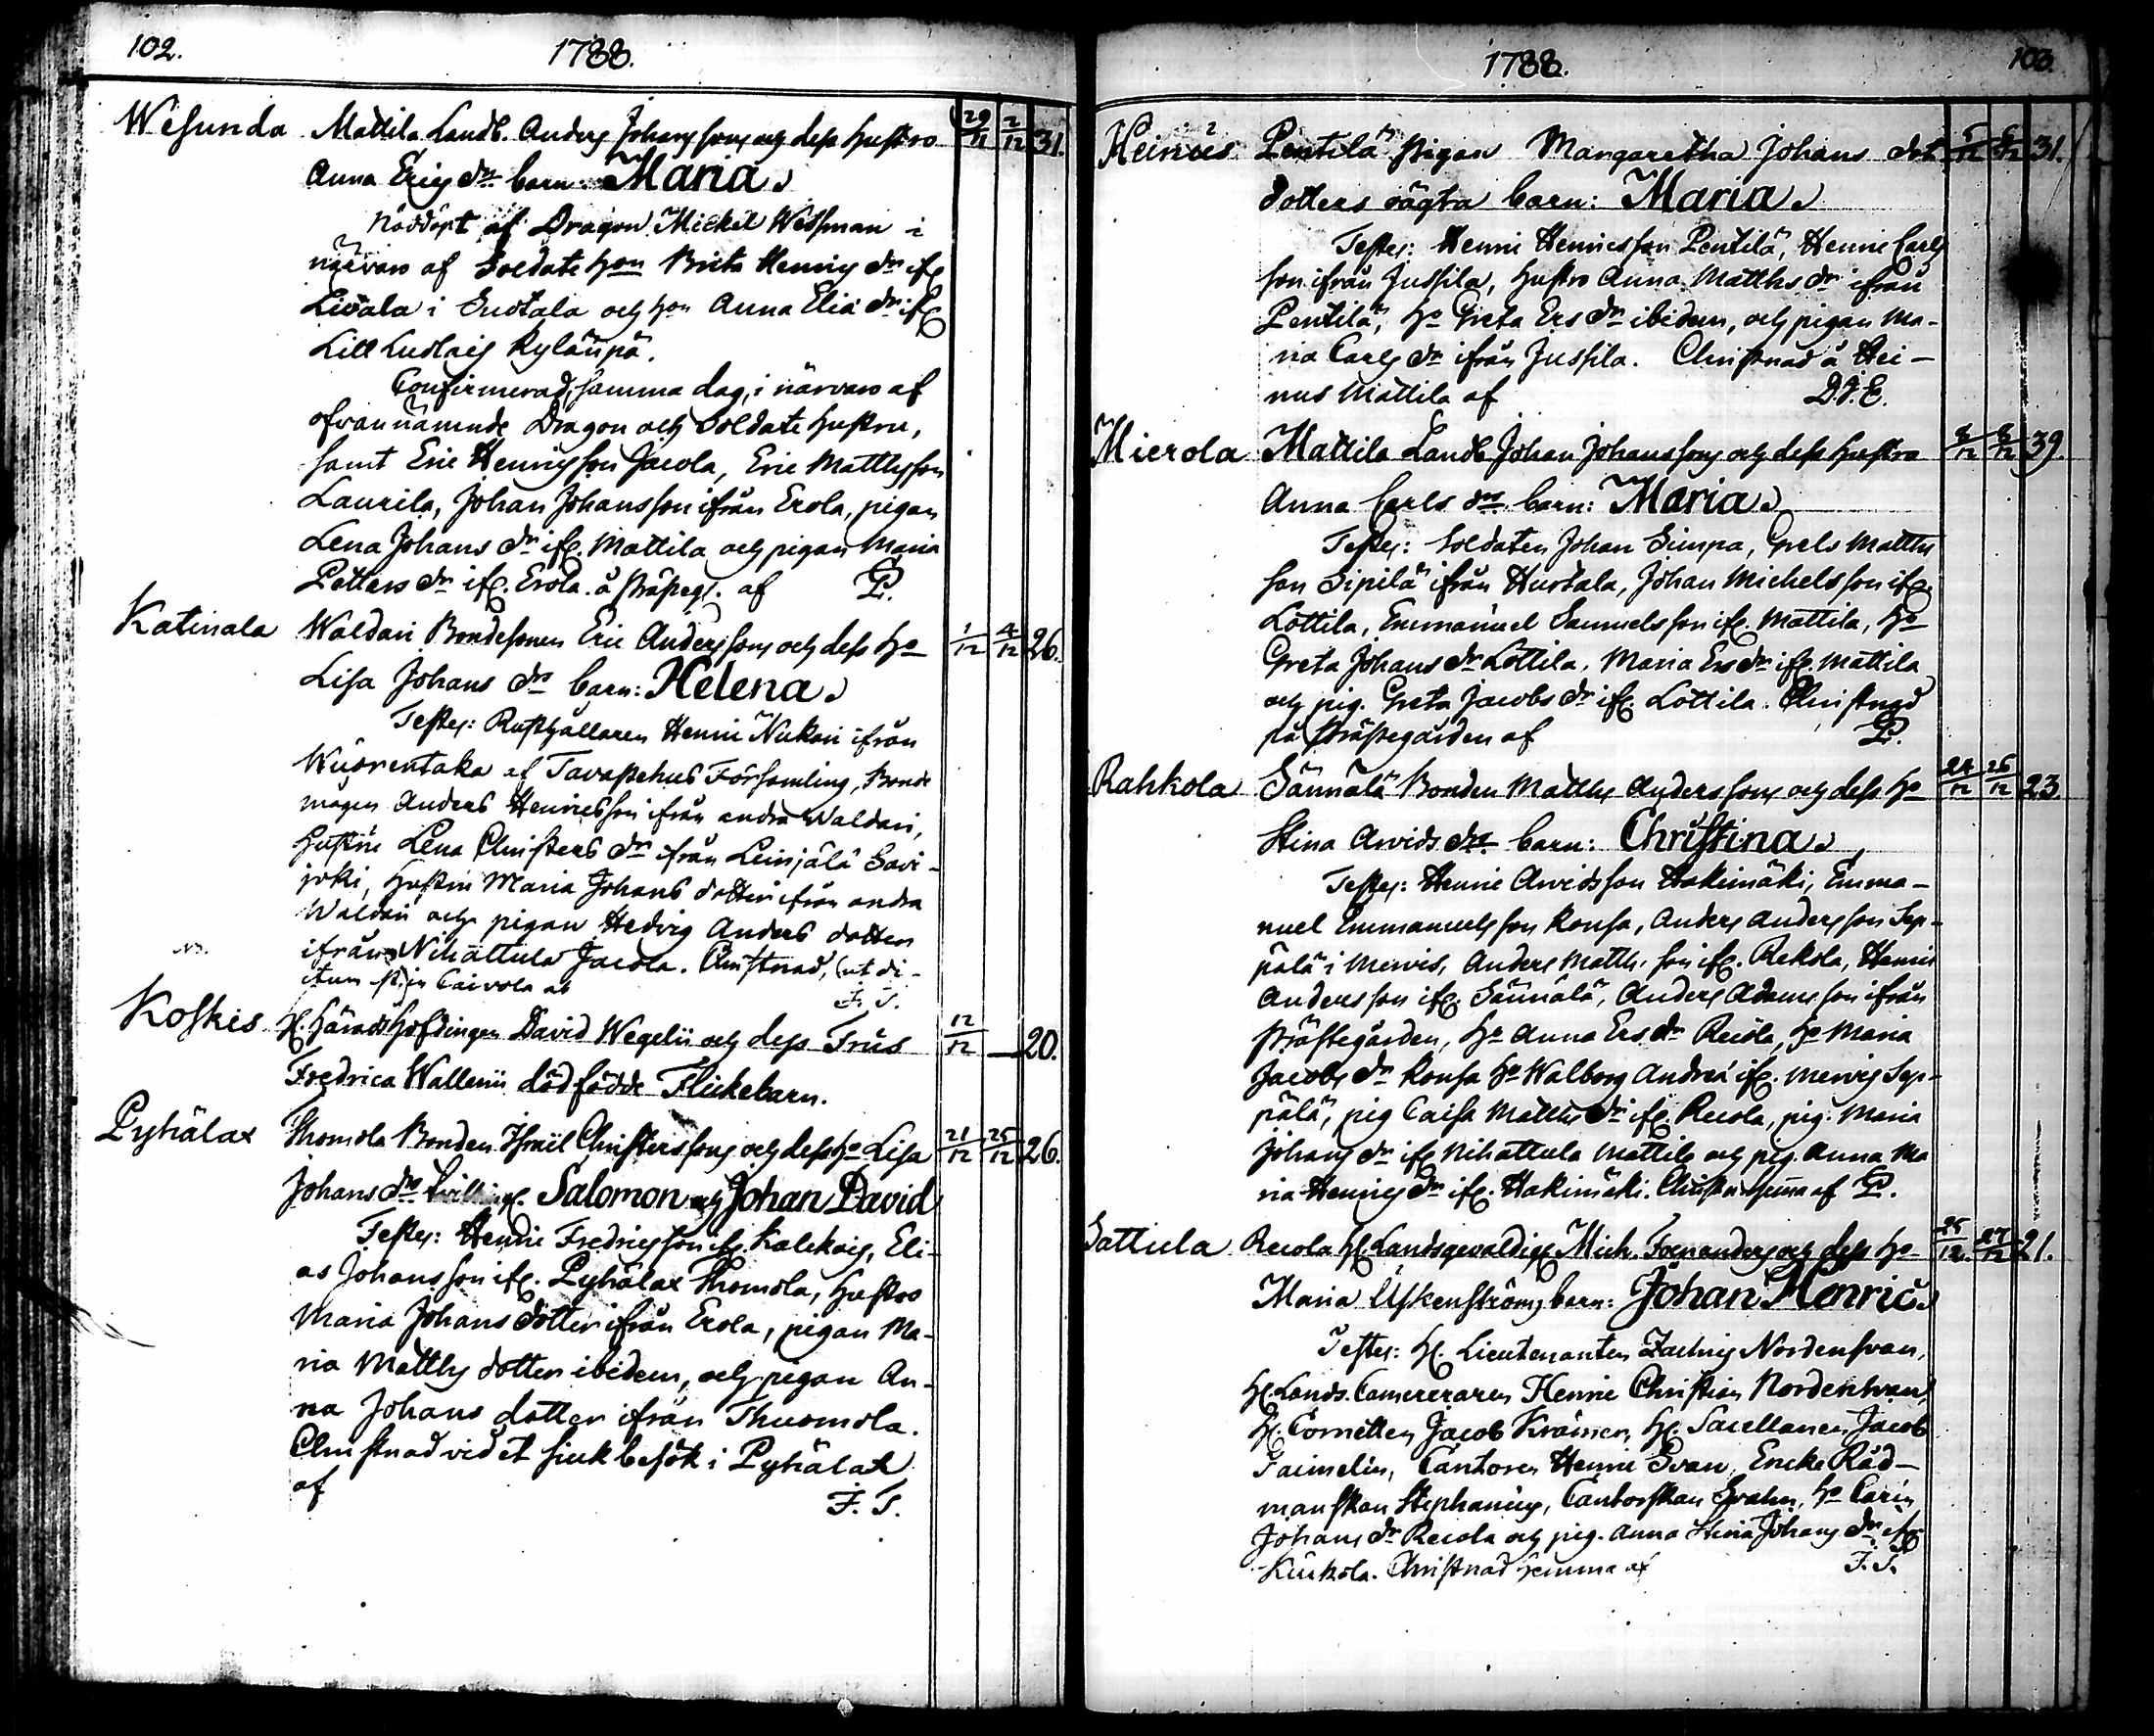 102.
1788.
Wesunda Mattila Landb. Anders Johanssons och dess hustro 29/11 2/12 31.
Anna Erics drs barn: Maria.
Nöddöpt af Dragon Mickel Wessman i
närvaro af Soldate hon Brita Henrics dr ifr
i och hon Anna Eliæ dr ifr
Lill Ludlais Kylänpä.
Confirmerad, samma dag, i närvaro af
ofvannämnde Dragon och Soldate hustru,
samt Eric Henricsson Jacola, Eric Matthsson
Laurila, Johan Johansson ifrån Erola, pigan
Lena Johans dr ifr. Mattila och pigan Maria
Petters dr ifr. Erola. å Prästeg. af P.
Katinala Waldari Bondesonen Eric Anderssons och dess ho 1/12 4/12 26.
Lisa Johans drs barn: Helena.
Testes: Rusthållaren Henric Nickari ifrån
Wuorentaka af Tavastehus Församling, Bonde
mågen Anders Henricsson ifrån andra Waldari,
hustru Lena Christers dr ifrån Leinjälä Savi-
joki, hustru Maria Johans dotter ifrån andra
Waldari och pigan Hedvig Anders dotter
ifrån Nihattula Jacola. Christnad, (ut di-
ctum st) in Caivola af F. T.
Koskis H. Häradshöfdingen David Wegelii och dess Frus 12/12 — 20.
Fredrica Wallenii dödfödde Flickebarn.
Pyhälax Thomola Bonden Israël Christerssons och dess ho Lisa 21/12 25/12 26.
Johans drs tvilling. Salomon och Johan David
Testes: Henric Fredricsson ifr. Kalckois, Eli-
as Johansson ifr. Pyhälax Thomola, hustro
Maria Johans dotter ifrån Erola, pigan Ma-
ria Matths dotter ibidem, och pigan An-
na Johans dotter ifrån Thuomola.
Christnad vid et siuk besök i Pyhälax
af F. T.
1788.
103.
Heinus Pentilä Pigan Margaretha Johans 5/12 31.
dotters oägta barn: Maria.
Testes: Henric Henricsson Pentilä, Henric Carls
son ifrån Jussila, hustro Anna Matths dr ifrån
Pentilä, ho Greta Ers dr ibidem, och pigan Ma-
ria Carls dr ifrån Jussila. Christnad å Hei-
nus Mattila af D.J.E.
Mierola Mattila Landb Johan Johanssons och dess hustro 8/12 8/12 39.
Anna Carls drs barn: Maria.
Testes: Soldaten Johan Simpa, Grels Matths
son Sipilä ifrån Hurtala, Johan Michelsson ifr.
Lottila, Emmanuel Samuelsson ifr. Mattila, ho
Greta Johans dr Lottila, Maria Ers dr ifr. Mattila
och pig. Greta Jacobs dr ifr. Lottila. Christnad
på Prästegården af P.
Rahkola Sännälä Bonden Matths Anderssons och dess ho 24/12 26/12 23.
Stina Arvids drs barn: Christina.
Testes: Henric Arvidsson Hakimäki, Emma-
nuel Emmanuelsson Konsa, Anders Andersson Sep-
pälä i Mervis, Anders Matths son ifr. Rekola, Henric
Andersson ifr. Sännälä, Anders Adamsson ifrån
Prästegården, ho Anna Ers dr Recola, ho Maria
Jacobs dr Konsa ho Walborg Andreæ ifr. Mervis Sep-
pälä, pig Caisa Matths dr ifr. Recola, pig. Maria
Johans dr ifr Nihattula Mattila och pig. Anna Ma
ria Henrics dr ifr. Hakimäki. Christn. hemma af P.
Sattula Recola H. Landsgevaldigen Mich. Forsanders och dess ho 26/12. 27/12 21.
Maria Uskenströms barn: Johan Henric.
Testes: H. Lieutenanten Zachris Nordensvan,
H. Lands. Camereraren Henric Christian Nordensvan,
H. Cornetten Jacob Kræmer, H. Sacellanen Jacob
Gaimelin, Cantoren Henric Svan, Encke Råd-
manskan Stephanius, Cantorskan Svahn, ho Carin
Johans dr Recola och pig. Anna Stina Johans dr ifr
Kurkola. Christnad hemma af F. T.